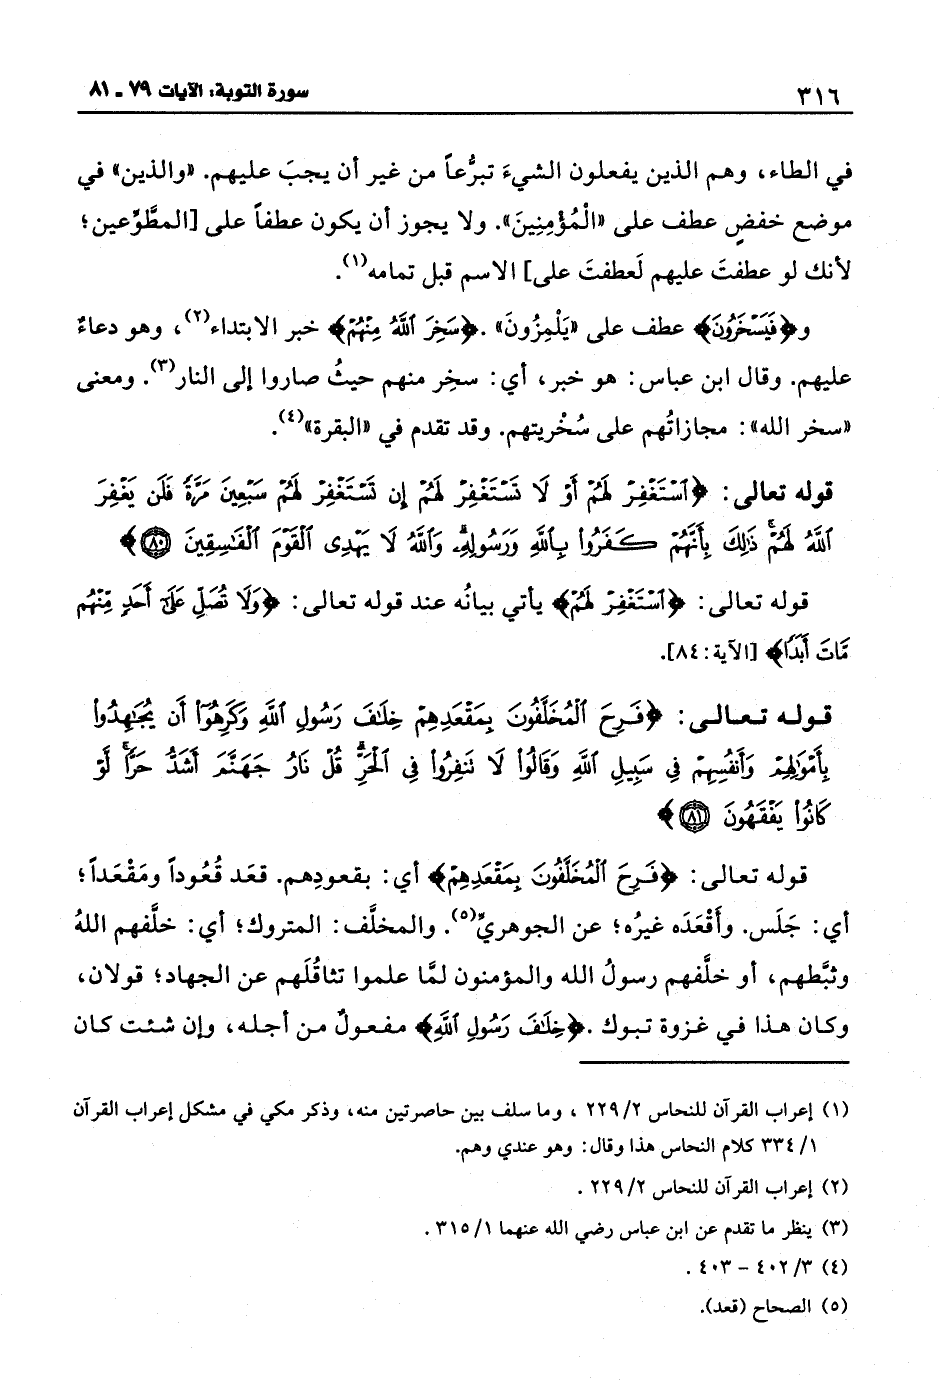 ٣١٦
سورة التوبة: الآيات ٧٩ ـ ٨١
في الطاء، وهم الذين يفعلون الشيءَ تبرُّعاً من غير أن يجبَ عليهم. «والذين» في
موضع خفضٍ عطف على «الْمُؤْمِنِينَ». ولا يجوز أن يكون عطفاً على [المطَّوِّعين؛
لأنك لو عطفتَ عليهم لَعطفتَ على] الاسم قبل تمامه(١).
و﴿فَيَسْخَرُونَ﴾ عطف على «يَلْمِزُونَ» .﴿سَخِرَ ٱللَّهُ مِنْهُمْ﴾ خبر الابتداء(٢)، وهو دعاءٌ
عليهم. وقال ابن عباس: هو خبر، أي: سخِر منهم حيثُ صاروا إلى النار(٣). ومعنى
«سخر الله»: مجازاتُهم على سُخْريتهم. وقد تقدم في «البقرة»(٤).
قوله تعالى: ﴿ٱسْتَغْفِرْ لَهُمْ أَوْ لَا تَسْتَغْفِرْ لَهُمْ إِن تَسْتَغْفِرْ لَهُمْ سَبْعِينَ مَرَّةً فَلَن يَغْفِرَ
ٱللَّهُ لَهُمْ ۚ ذَٰلِكَ بِأَنَّهُمْ كَفَرُوا۟ بِٱللَّهِ وَرَسُولِهِۦ ۗ وَٱللَّهُ لَا يَهْدِى ٱلْقَوْمَ ٱلْفَـٰسِقِينَ ۝٨٠﴾
قوله تعالى: ﴿ٱسْتَغْفِرْ لَهُمْ﴾ يأتي بيانُه عند قوله تعالى: ﴿وَلَا تُصَلِّ عَلَىٰٓ أَحَدٍ مِّنْهُم
مَّاتَ أَبَدًا﴾ [الآية: ٨٤].
قوله تعالى: ﴿فَرِحَ ٱلْمُخَلَّفُونَ بِمَقْعَدِهِمْ خِلَـٰفَ رَسُولِ ٱللَّهِ وَكَرِهُوٓا۟ أَن يُجَـٰهِدُوا۟
بِأَمْوَٰلِهِمْ وَأَنفُسِهِمْ فِى سَبِيلِ ٱللَّهِ وَقَالُوا۟ لَا تَنفِرُوا۟ فِى ٱلْحَرِّ ۗ قُلْ نَارُ جَهَنَّمَ أَشَدُّ حَرًّا ۚ لَّوْ
كَانُوا۟ يَفْقَهُونَ ۝٨١﴾
قوله تعالى: ﴿فَرِحَ ٱلْمُخَلَّفُونَ بِمَقْعَدِهِمْ﴾ أي: بقعودِهم. قعَد قُعُوداً ومَقْعَداً؛
أي: جَلَس. وأَقْعَدَه غيرُه؛ عن الجوهريِّ(٥). والمخلَّف: المتروك؛ أي: خلَّفهم اللهُ
وثبَّطهم، أو خلَّفهم رسولُ الله والمؤمنون لمَّا علموا تثاقُلَهم عن الجهاد؛ قولان،
وكان هذا في غزوة تبوك .﴿خِلَـٰفَ رَسُولِ ٱللَّهِ﴾ مفعولٌ من أجله، وإن شئت كان
(١) إعراب القرآن للنحاس ٢/ ٢٢٩ ، وما سلف بين حاصرتين منه، وذكر مكي في مشكل إعراب القرآن
١/ ٣٣٤ كلام النحاس هذا وقال: وهو عندي وهم.
(٢) إعراب القرآن للنحاس ٢/ ٢٢٩ .
(٣) ينظر ما تقدم عن ابن عباس رضي الله عنهما ١/ ٣١٥ .
(٤) ٣/ ٤٠٢ - ٤٠٣ .
(٥) الصحاح (قعد).